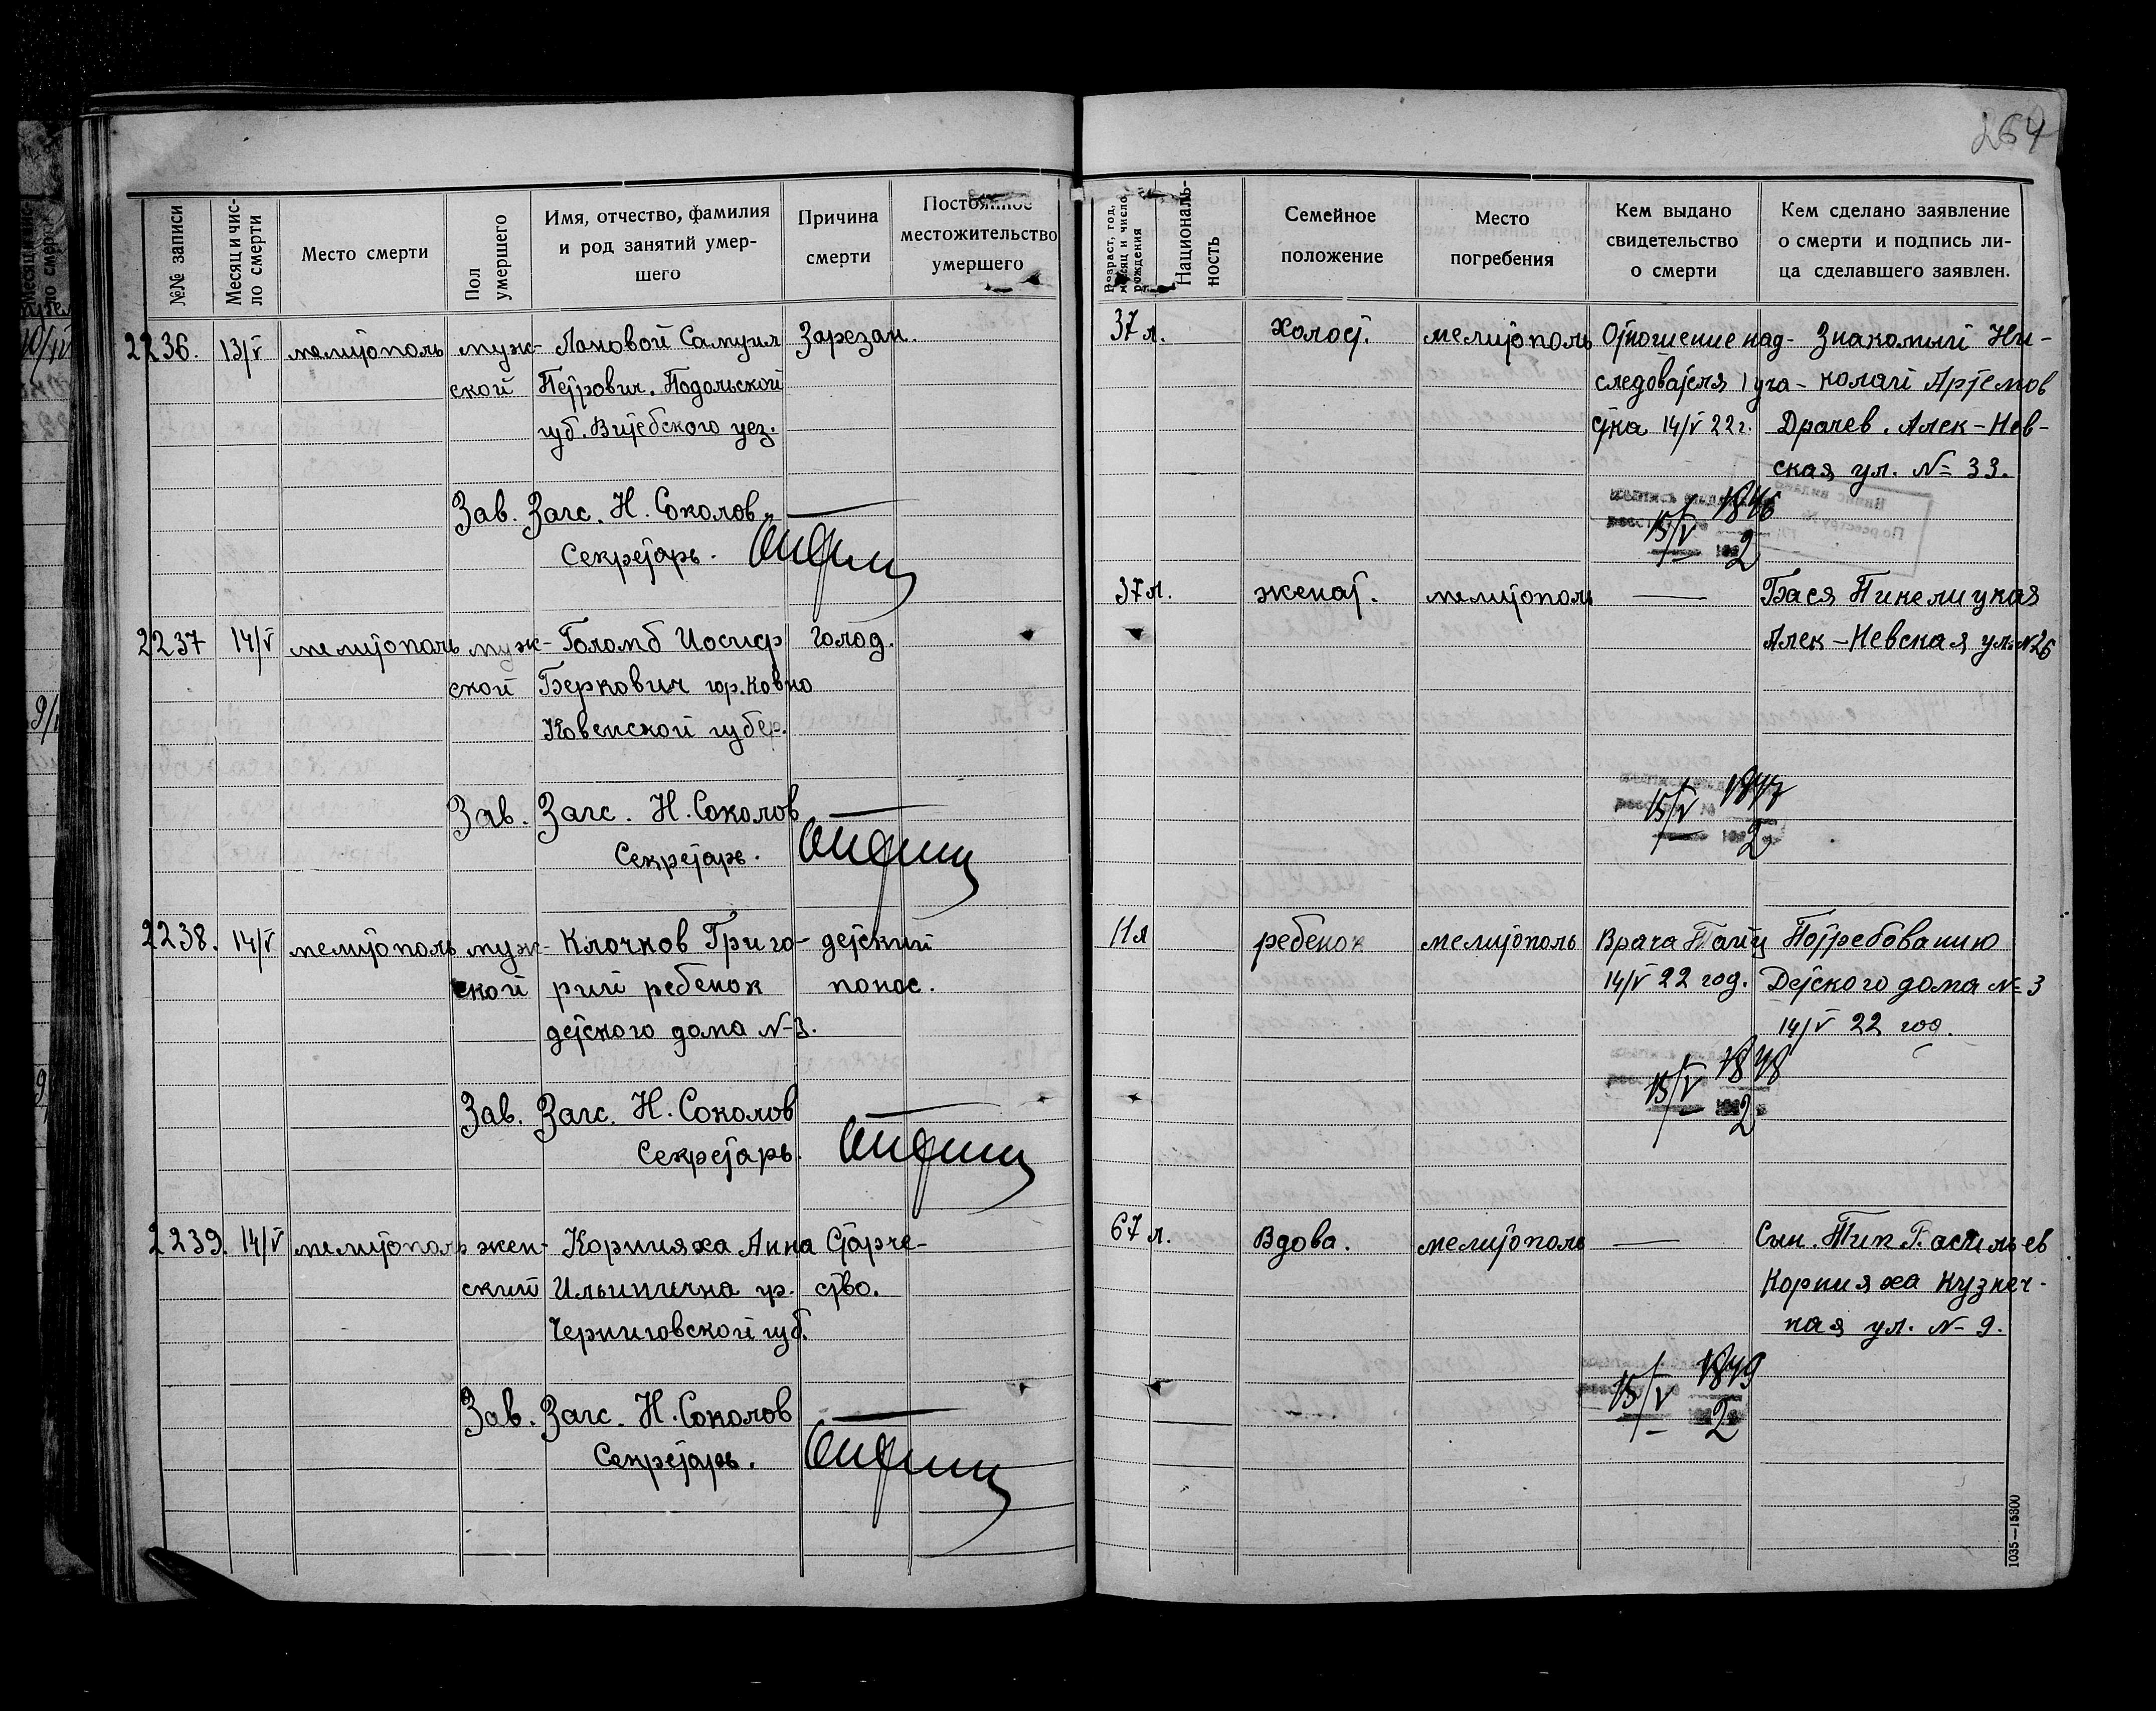 264
№№ записи
Месяц и чис-
ло смерти
Место смерти
Пол
умершего
Имя, отчество, фамилия
и род занятий умер-
шего
Причина
смерти
Постоянное
местожительство
умершего
Возраст, год,
месяц и число
рождения
Националь-
ность
Семейное
положение
Место
погребения
Кем выдано
свидетельство
о смерти
Кем сделано заявление
о смерти и подпись ли-
ца сделавшего заявлен.
2236. 13/V мелитополь муж- Лановой Самуил Зарезан. 37 л. Холост. мелитополь Отношение над- Знакомый Ни-
ской Петрович. Подольской следователя 1 уча- колай Артемов
губ. Витебского уез. стка 14/V 22 г. Драчев. Алек-Нев-
ская ул. № 33.
Зав. Загс. Н. Соколов 1846
Секретарь. 15/V 2
2237 14/V мелитополь муж- Голомб Иосиф голод. 37 л. женат. мелитополь — Бася Пинелицкая
ской Беркович гор. Ковно Алек-Невская ул. №26
Ковенской губер.
Зав. Загс. Н. Соколов 1847
Секретарь. 15/V 2
2238. 14/V мелитополь муж- Клочков Григо- детский 11 л ребенок мелитополь Врача По требованию
ской рий ребенок понос. 14/V 22 год. Детского дома №3
детского дома №3. 14/V 22 год.
Зав. Загс. Н. Соколов 1848
Секретарь. 15/V 2
2239. 14/V мелитополь жен- Корнияха Анна Старче- 67 л. Вдова. мелитополь — Сын.
ский Ильинична ур. ство. Корнияха Кузнеч-
Черниговской губ. ная ул. № 9.
Зав. Загс. Н. Соколов 1849
Секретарь. 15/V 2
1035—15300